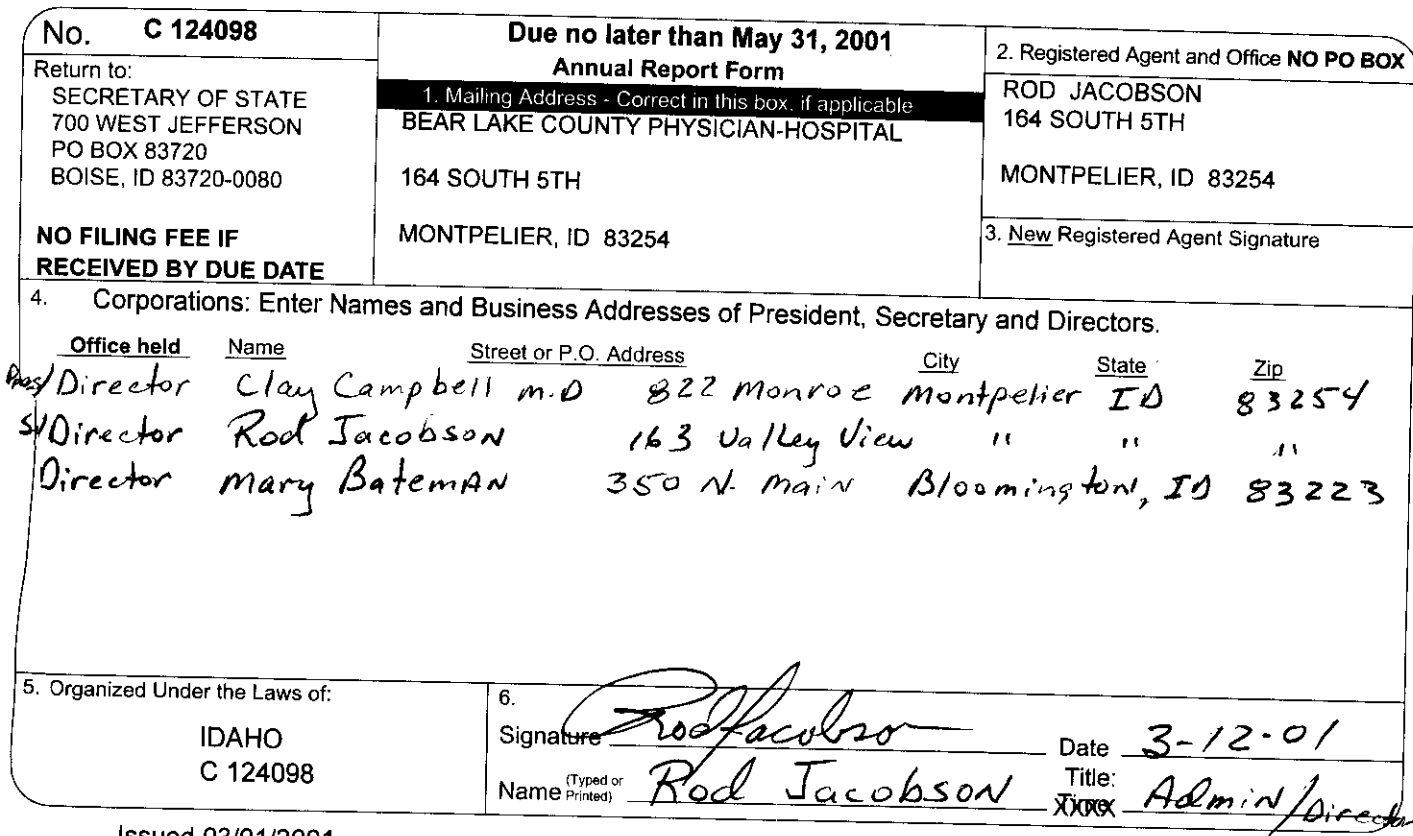 No. C 124098
Return to:
SECRETARY OF STATE
700 WEST JEFFERSON
PO BOX 83720
BOISE, ID 83720-0080
NO FILING FEE IF
RECEIVED BY DUE DATE
Due no later than May 31, 2001
Annual Report Form
1. Mailing Address - Correct in this box, if applicable
BEAR LAKE COUNTY PHYSICIAN-HOSPITAL
164 SOUTH 5TH
MONTPELIER, ID 83254
2. Registered Agent and Office NO PO BOX
ROD JACOBSON
164 SOUTH 5TH
MONTPELIER, ID 83254
3. New Registered Agent Signature
4. Corporations: Enter Names and Business Addresses of President, Secretary and Directors.
Office held Name Street or P.O. Address City State Zip
Pres/Director Clay Campbell M.D 822 Monroe Montpelier ID 83254
S/Director Rod Jacobson 163 Valley View " " "
Director Mary Bateman 350 N. Main Bloomington, ID 83223
5. Organized Under the Laws of:
IDAHO
C 124098
6.
Signature Rod Jacobson Date 3-12-01
Name (Typed or Printed) Rod Jacobson Title: Admin/Director
Issued 03/01/2001